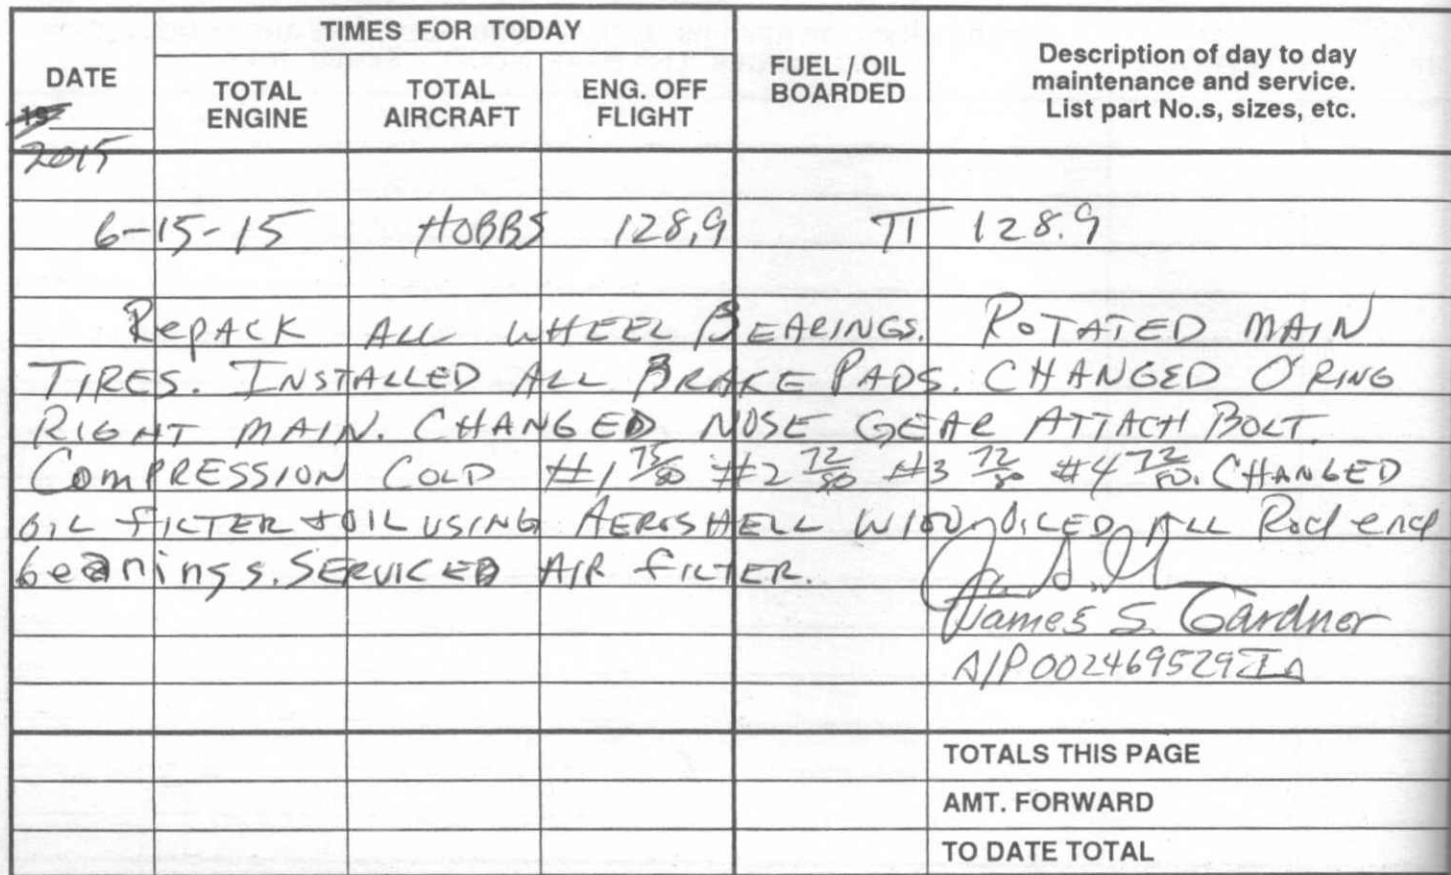 TIMES FOR TODAY
DATE
TOTAL ENGINE
TOTAL AIRCRAFT
ENG. OFF FLIGHT
FUEL / OIL BOARDED
Description of day to day
maintenance and service.
List part No.s, sizes, etc.
19
2015
6-15-15 HOBBS 128.9 TT 128.9
RePACK ALL WHEEL BEARINGS. ROTATED MAIN
TIRES. INSTALLED ALL BRAKE PADS. CHANGED O'RING
RIGHT MAIN. CHANGED NOSE GEAR ATTACH BOLT.
COMPRESSION COLD #1 75/80 #2 72/80 #3 72/80 #4 72/80. CHANGED
OIL FILTER + OIL USING AEROSHELL W100, OILED ALL Rod end
bearings. SERVICED AIR FILTER.
James S. Gardner
A/P 002469529 IA
TOTALS THIS PAGE
AMT. FORWARD
TO DATE TOTAL